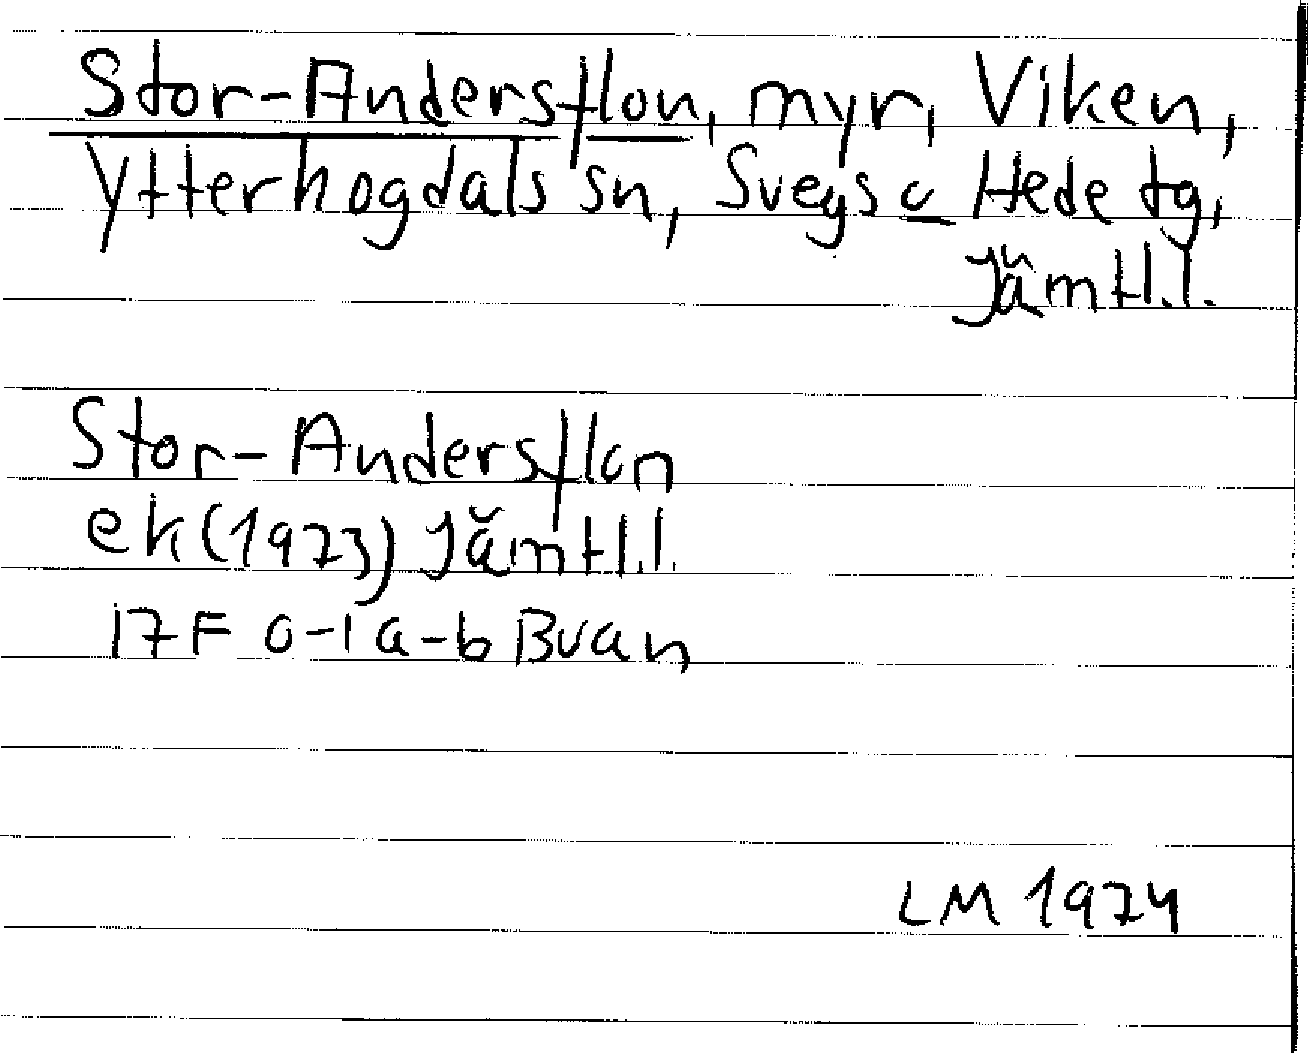 Stor-Andersflon, myr, Viken,
Ytterhogdals sn, Svegs o Hede tg,
Jämtl.l.
Stor-Andersflon
ek(1973) Jämtl.l.
17F 0-1 a-b Buan
LM 1974